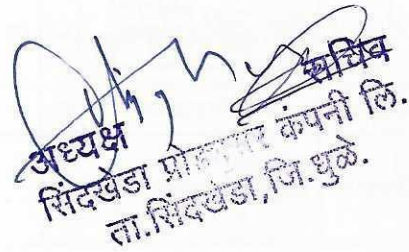 अध्यक्ष सचिव
सिंदखेडा प्रोड्युसर कंपनी लि.
ता.सिंदखेडा,जि.धुळे.